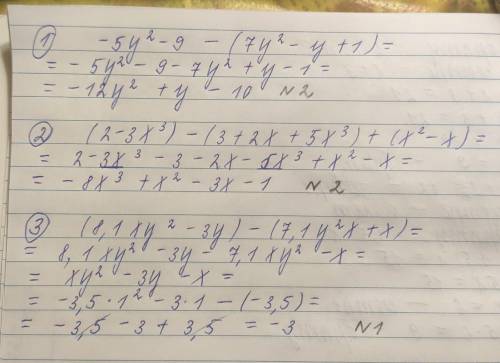 ① -5y² - 9 - (7y² - y + 1) =
= - 5y² - 9 - 7y² + y - 1 =
= -12y² + y - 10 N2
② (2-3x³) - (3 + 2x + 5x³) + (x² - x) =
= 2 - 3x³ - 3 - 2x - 5x³ + x² - x =
= - 8x³ + x² - 3x - 1 N2
③ (8,1xy² - 3y) - (7,1y²x + x) =
= 8,1xy² - 3y - 7,1xy² - x =
= xy² - 3y - x =
= -3,5 · 1² - 3 · 1 - (-3,5) =
= -3,5 - 3 + 3,5 = -3 N1